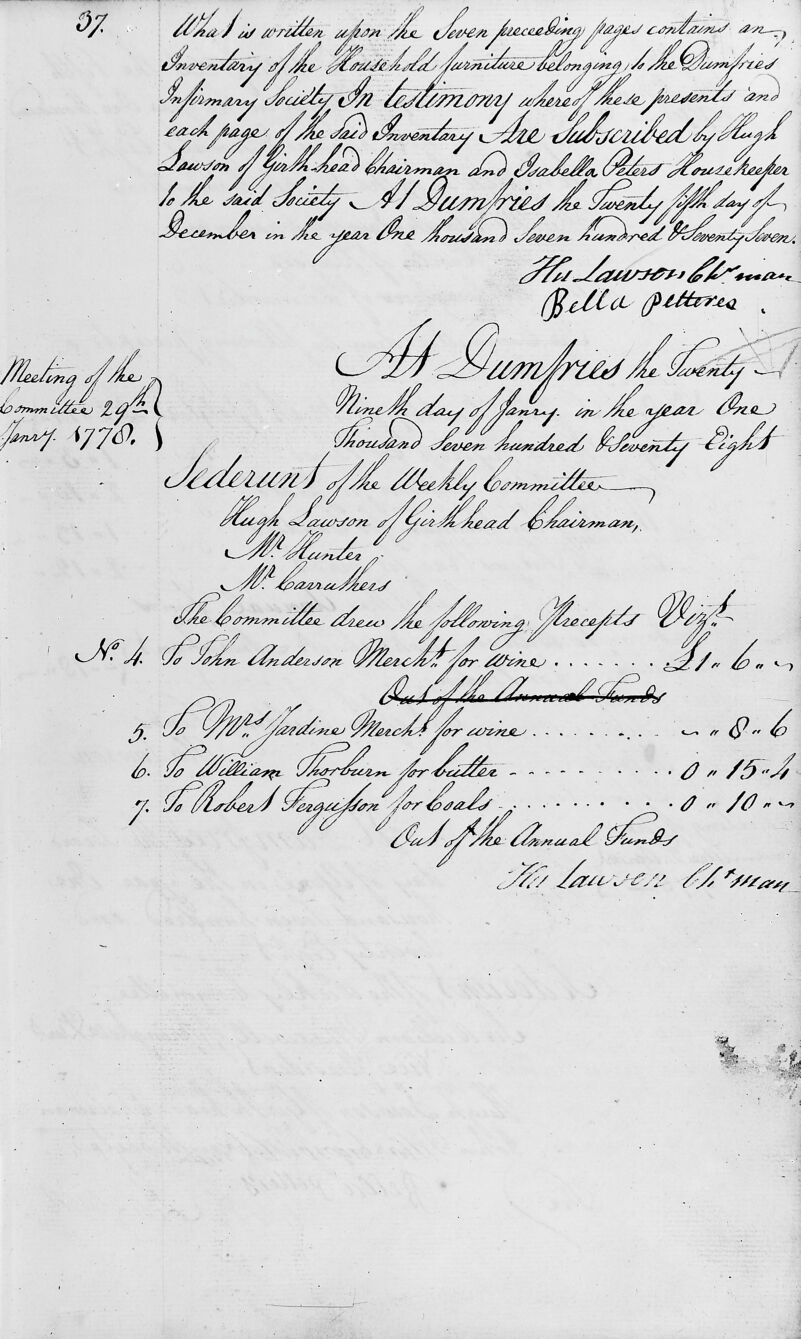 37.
What is written upon the Seven preceeding pages contains an
Inventary of the Household furniture belonging to the Dumfries
Infirmary Society In testimony whereof these presents and
each page of the said Inventary Are Subscribed by Hugh
Lawson of Girthhead Chairman and Isabella Peters Housekeeper
to the said Society At Dumfries the Twenty fifth day of
December in the year One thousand Seven hundred & Seventy Seven.
Hu Lawson Chr. man
Bella Pettores
Meeting of the
Committee 29th
Janry. 1778.
At Dumfries the Twenty
Nineth day of Janry. in the year One
Thousand Seven hundred & Seventy Eight
Sederunt of the Weekly Committee
Hugh Lawson of Girthhead Chairman,
Mr. Hunter
Mr. Carruthers
The Committee drew the following Precepts Vizt.
No. 4. To John Anderson Mercht. for wine ....... £1 " 6 " ~
Out of the Annual Funds
5. To Mrs. Jardine Mercht. for wine ......... ~ " 8 " 6
6. To William Thorburn for butter ......... 0 " 15 " 4
7. To Robert Fergusson for Coals .......... 0 " 10 " ~
Out of the Annual Funds
Hu Lawson Chr man